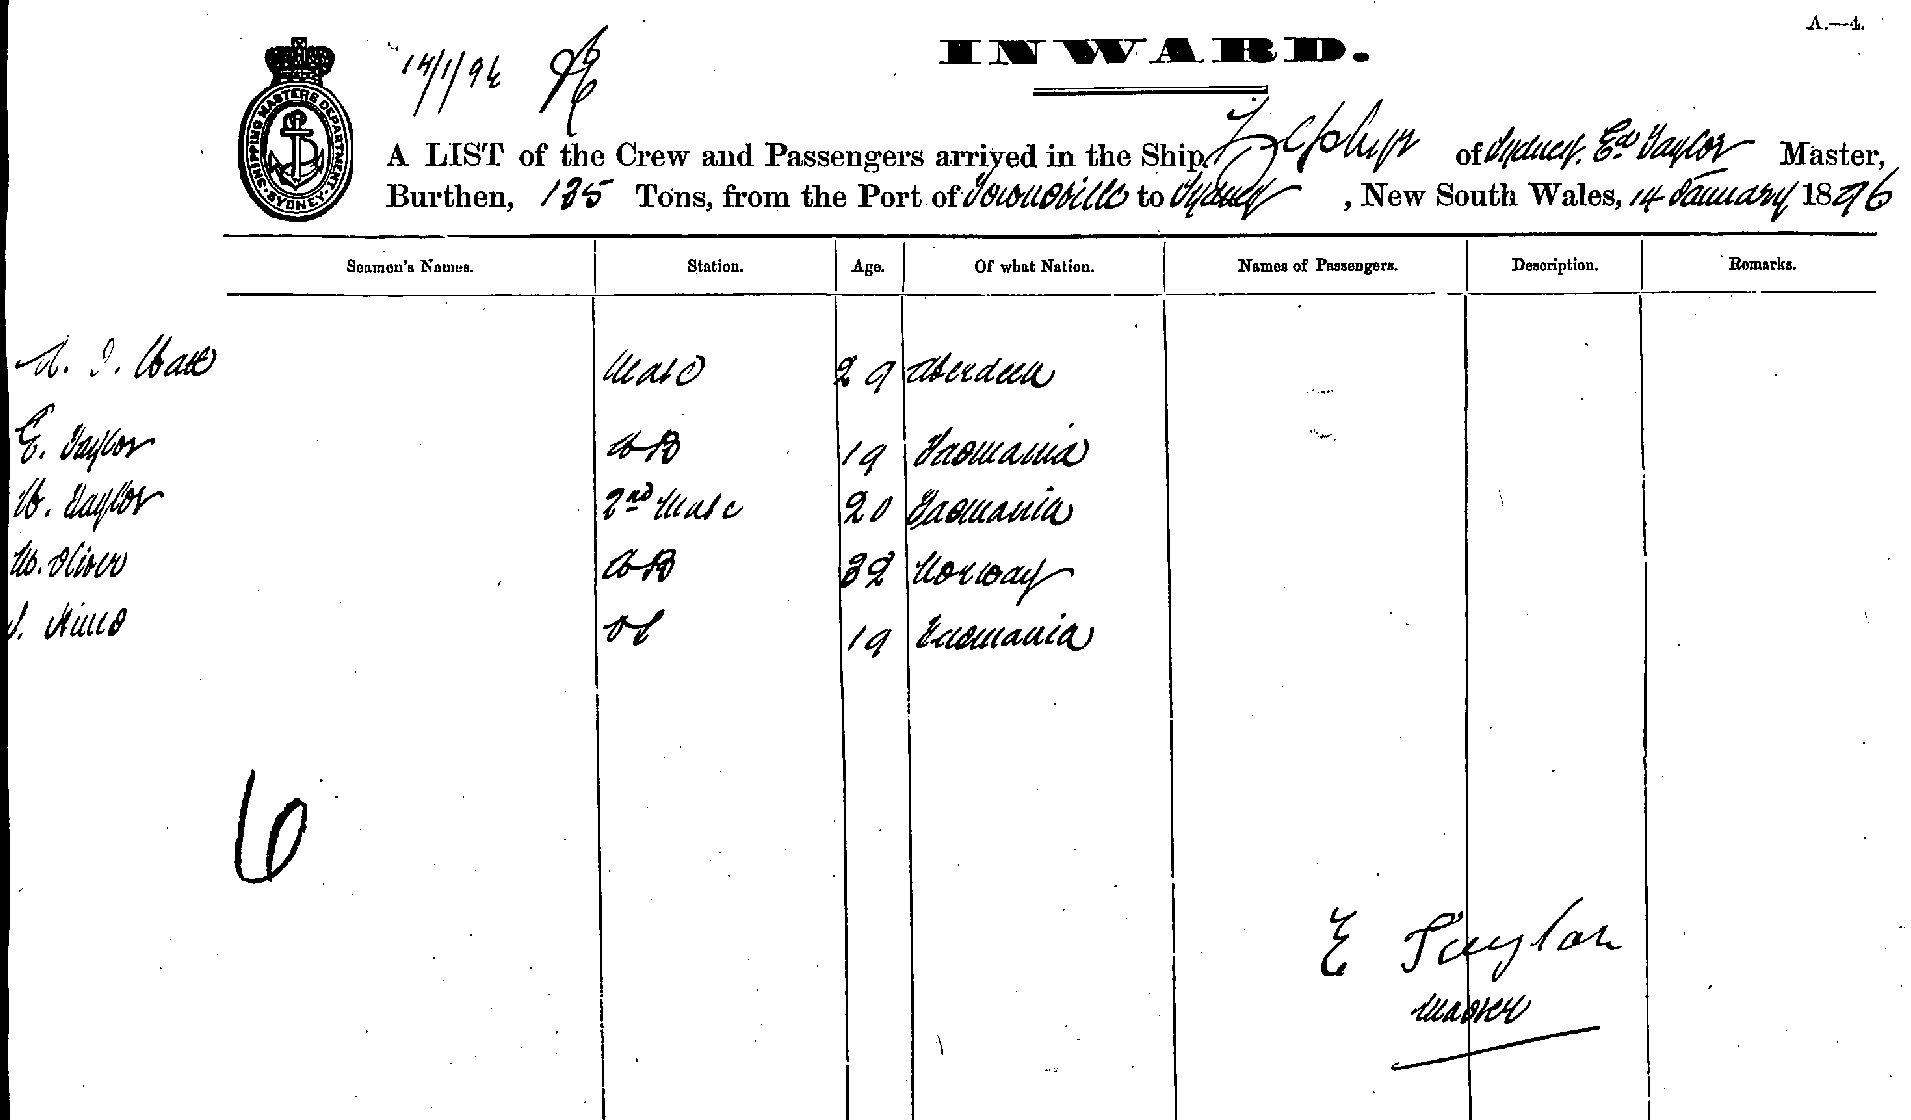 A.—4.
14/1/96
INWARD.
SHIPPING MASTERS DEPARTMENT SYDNEY
A LIST of the Crew and Passengers arrived in the Ship Zephyr of Sydney. Ed Taylor Master,
Burthen, 135 Tons, from the Port of Townsville to Sydney, New South Wales, 14 January 1896
Seamen's Names. Station. Age. Of what Nation. Names of Passengers. Description. Remarks.
Mate 29 Aberdeen
E. Taylor AB 19 Tasmania
W. Taylor 2nd Mate 20 Tasmania
Oliver AB 32 Norway
OS 19 Tasmania
6
E Taylor
Master